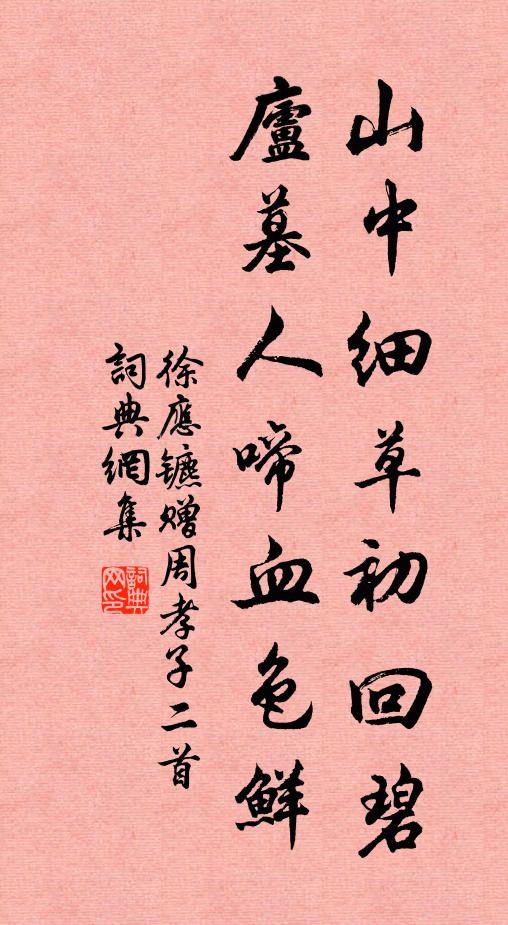 山中細草初回碧
廬墓人啼血色鮮
徐應鑣贈周孝子二首
詞典網集
詞典
网印